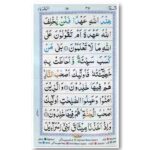 عِنْدَ اللّٰهِ عَهْدًا فَلَنْ يُّخْلِفَ
اللّٰهُ عَهْدَهٗۤ اَمْ تَقُوْلُوْنَ عَلَى
اللّٰهِ مَا لَا تَعْلَمُوْنَ بَلٰى مَنْ
كَسَبَ سَيِّئَةً وَّاَحَاطَتْ بِهٖ
خَطِيْٓئَتُهٗ فَاُولٰٓئِكَ اَصْحٰبُ النَّارِ
هُمْ فِيْهَا خٰلِدُوْنَ وَالَّذِيْنَ
اٰمَنُوْا وَعَمِلُوا الصّٰلِحٰتِ اُولٰٓئِكَ
اَصْحٰبُ الْجَنَّةِ هُمْ فِيْهَا خٰلِدُوْنَ
وَاِذْ اَخَذْنَا مِيْثَاقَ بَنِيْٓ